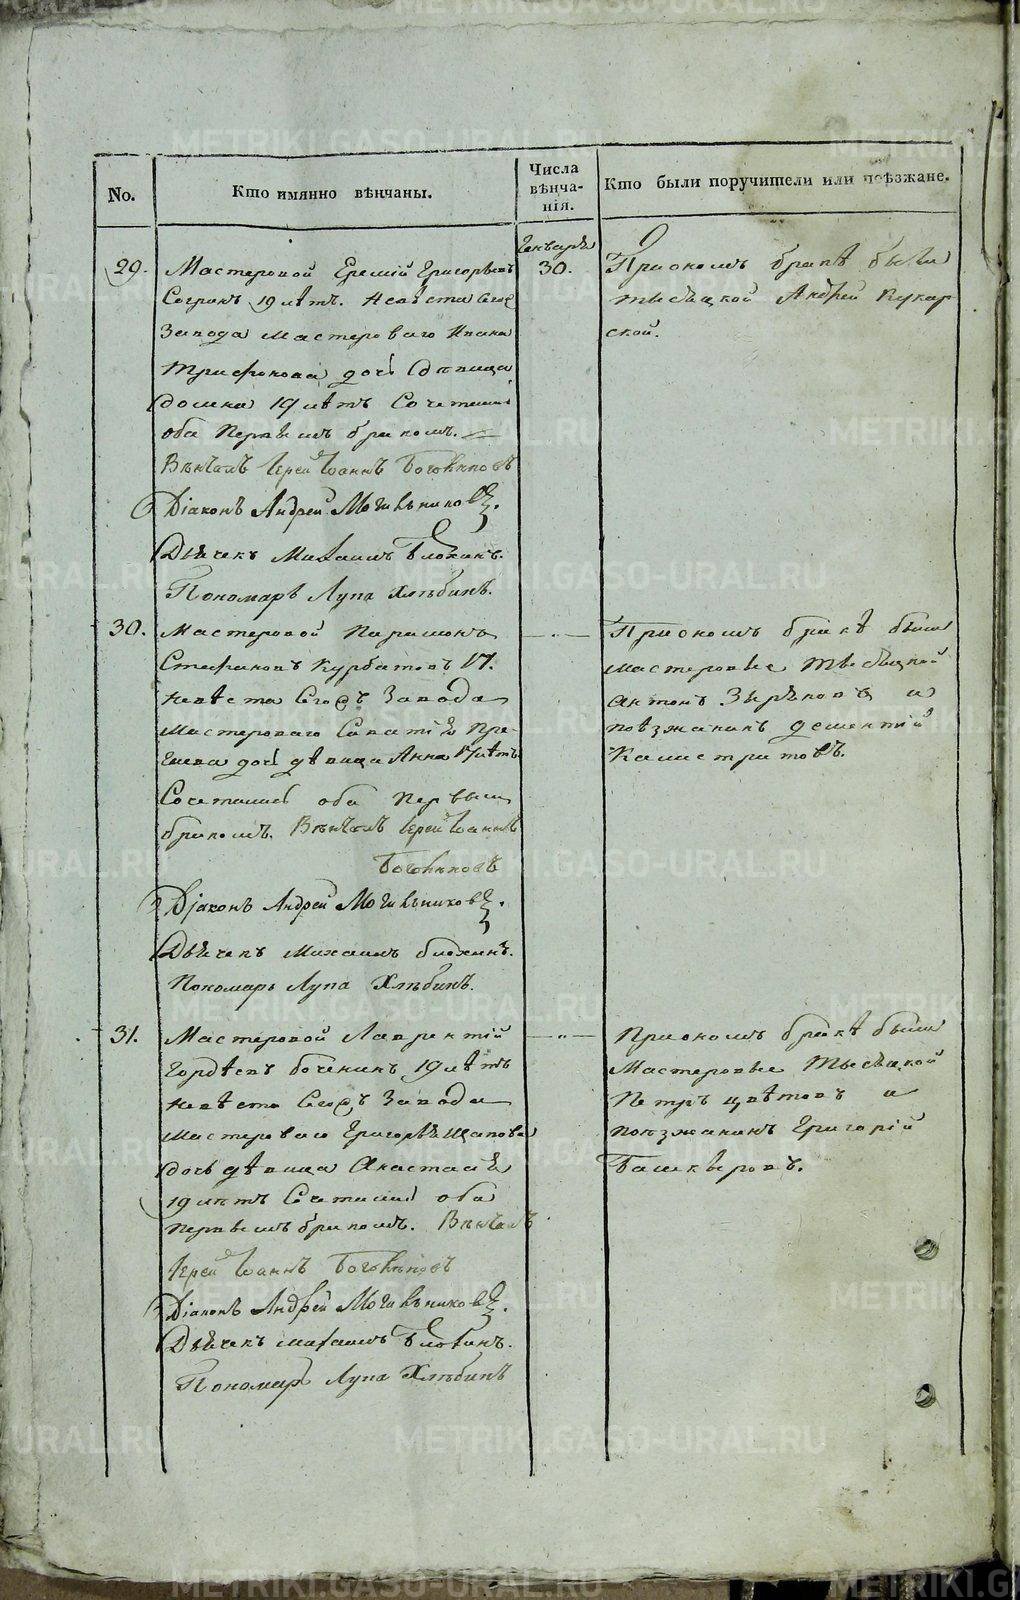 No.
Кто имянно вѣнчаны.
Числа
вѣнча-
нія.
Кто были поручители или поѣзжане.
Генваря
29.
Мастеровой Еремій Григорьевъ
19 лѣтъ. Невѣста Сего
Завода мастероваго Ивана
Трифонова дочь дѣвица
Домна 19 лѣтъ Сочетались
оба Первымъ бракомъ.
Вѣнчалъ Іерей Іоаннъ
Діаконъ Андрей Могильниковъ.
Дьячекъ Михаилъ Блохинъ.
Пономарь Лупа Хлѣбинъ.
30.
При ономъ бракѣ были
тысяцкой Андрей Кукар
ской.
30.
Мастеровой Парамонъ
Стафановъ Курбатовъ 17.
невѣста Сегожъ Завода
Мастероваго Саватія
дочь дѣвица Анна 17 лѣтъ
Сочетались оба первымъ
бракомъ. Вѣнчалъ Іерей Іоаннъ
Діаконъ Андрей Могильниковъ.
Дьячекъ Михаилъ Блохинъ.
Пономарь Лупа Хлѣбинъ.
— " —
При ономъ бракѣ были
мастеровые тысяцкой
Антонъ Зыряновъ и
поѣзжанинъ Дементій
Калистратовъ.
31.
Мастеровой Лаврентій
Гордѣевъ Боченинъ 19 лѣтъ
невѣста Сегожъ Завода
мастероваго Григорья Щапова
дочь дѣвица Анастасія
19 лѣтъ Сочетались оба
первымъ бракомъ. Вѣнчалъ
Іерей Іоаннъ
Діаконъ Андрей Могильниковъ.
Дьячекъ Михаилъ Блохинъ.
Пономарь Лупа Хлѣбинъ
— " —
При ономъ бракѣ были
Мастеровые Тысяцкой
Петръ Цвѣтовъ и
поѣзжанинъ Григорій
Башкыровъ.
METRIKI.GASO-URAL.RU